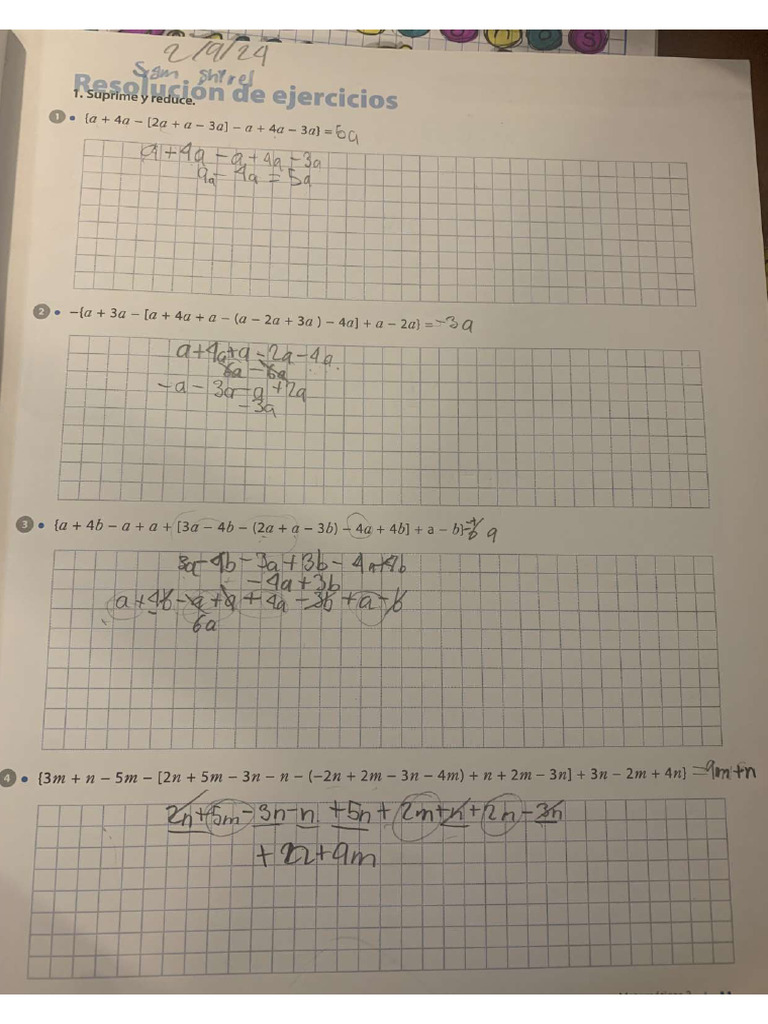 2/9/24
Sam Shirel
Resolución de ejercicios
1. Suprime y reduce.
1 • {a + 4a – [2a + a – 3a] – a + 4a – 3a} = 5a
a + 4a – a + 4a – 3a
9a – 4a = 5a
2 • –{a + 3a – [a + 4a + a – (a – 2a + 3a ) – 4a] + a – 2a} = –3a
a + 4a + a – 2a – 4a
6a – 6a
–a – 3a – a + 2a
–3a
3 • {a + 4b – a + a + [3a – 4b – (2a + a – 3b) – 4a + 4b] + a – b} = a
3a – 4b – 3a + 3b – 4a + 4b
– 4a + 3b
a + 4b – a + a + 4a – 3b + a – b
6a
4 • {3m + n – 5m – [2n + 5m – 3n – n – (–2n + 2m – 3n – 4m) + n + 2m – 3n] + 3n – 2m + 4n} = 9m + n
2n + 5m – 3n – n + 5n + 2m + n + 2n – 3n
+ 2n + 9m